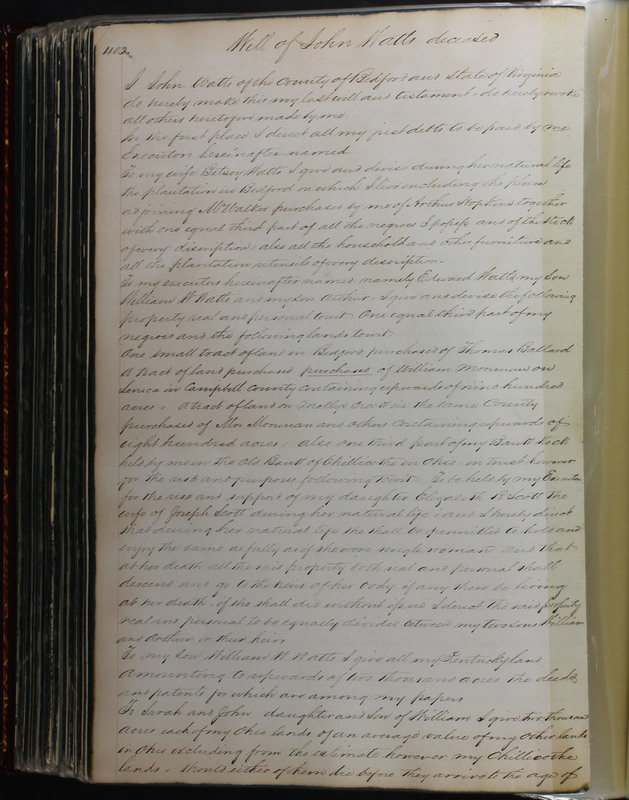 402
Will of John Watts deceased
I John Watts of the County of Bedford and State of Virginia
do hereby make this my last will and testament. do hereby revoke
all others heretofore made by me.
In the first place I direct all my just debts to be paid by my
Executors hereinafter named
To my wife Betsey Watts I give and devise during her natural life
the plantation in Bedford on which I live including the place
adjoining Mr Walker purchased by me of Arthur Hopkins together
with one equal third part of all the negroes I possess and of the stock
of every discription, also all the household and other furniture and
all the plantation utensils of every discription.
To my executors hereinafter named, namely Edward Watts, my Son
William W Watts and my son Arthur I give and devise the following
property real and personal towit. One equal third part of my
negroes and the following lands towit
One small tract of land in Bedford purchased of Thomas Ballard
A tract of land purchased purchased of William Monroe on
Seneca in Campbell County containing upwards of nine hundred
acres, A tract of land on Creek in the same County
purchased of and others containing upwards of
eight hundred acres; also one third part of my Bank Stock
held by me in the Old Bank of Chillicothe in Ohio in trust however
for the use and purposes following towit. To be held by my Executors
for the use and support of my daughter Elizabeth R Scott the
wife of Joseph Scott during her natural life and I hereby direct
that during her natural life she shall be permitted to hold and
enjoy the same as fully as if she were single woman and that
at her death all the said property both real and personal shall
descend and go to the heirs of her body if any there be living
at her death, if she shall die without issue I direct the said property
real and personal to be equally divided between my two sons William
and Arthur or their heirs
To my Son William W Watts I give all my Kentucky land
amounting to upwards of two thousand acres the deeds
and patents for which are among my papers
To Sarah and John daughter and son of William I give two thousand
acres each of my Ohio lands of an average value of my other lands
in Ohio excluding from the estimate however my Chillicothe
lands, should either of them die before they arrive to the age of